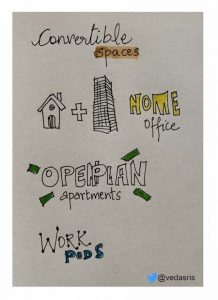 Convertible
spaces
+
HOME
office
OPEN PLAN
apartments
WORK
PODS
@vedasris